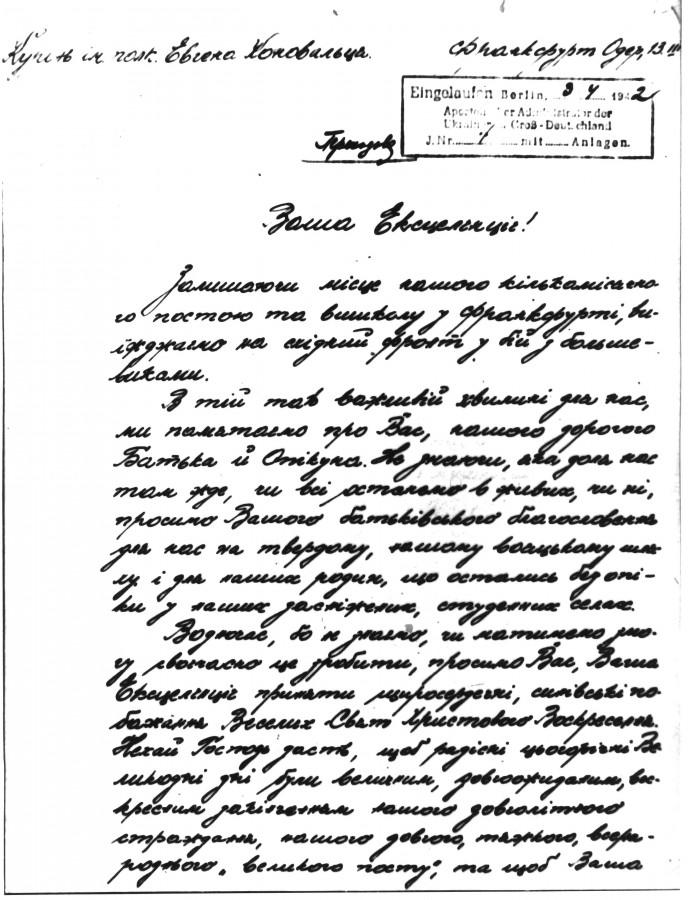 Курінь ім. полк. Евгена Коновальця.
Франкфурт Одер, 13.III
Eingelaufen Berlin, 3 4 1942
Apostol der Administrator der
Ukrainer Groß-Deutschland
J.Nr. mit Anlagen.
Ваша Ексцеленціє!
Залишаючи місце нашого кількамісячно-
го постою та вишколу у Франкфурті, ви-
їжджаємо на східний фронт у бій з больше-
виками.
В тій так важливій хвилині для нас,
ми памятаємо про Вас, нашого дорогого
Батька й Опікуна. Не знаючи, яка доля нас
там жде, чи всі остаємо в живих, чи ні,
просимо Вашого батьківського благословення
для нас на твердому, нашому вояцькому шля-
ху і для наших родин, що остались без опі-
ки у наших засніжених, студених селах.
Водночас, бо не знаємо, чи матимемо змо-
гу своєчасно це зробити, просимо Вас, Ваша
Ексцеленціє приняти щиросердечні, синівські по-
бажання Веселих Свят Христового Воскресення.
Нехай Господь дасть, щоб радісні цьогорічні Ве-
ликодні дні були величним, довгоожиданим, вос-
кресним закінченням нашого довголітного
страждання, нашого довгого, тяжкого, всена-
роднього „великого посту", та щоб Ваша